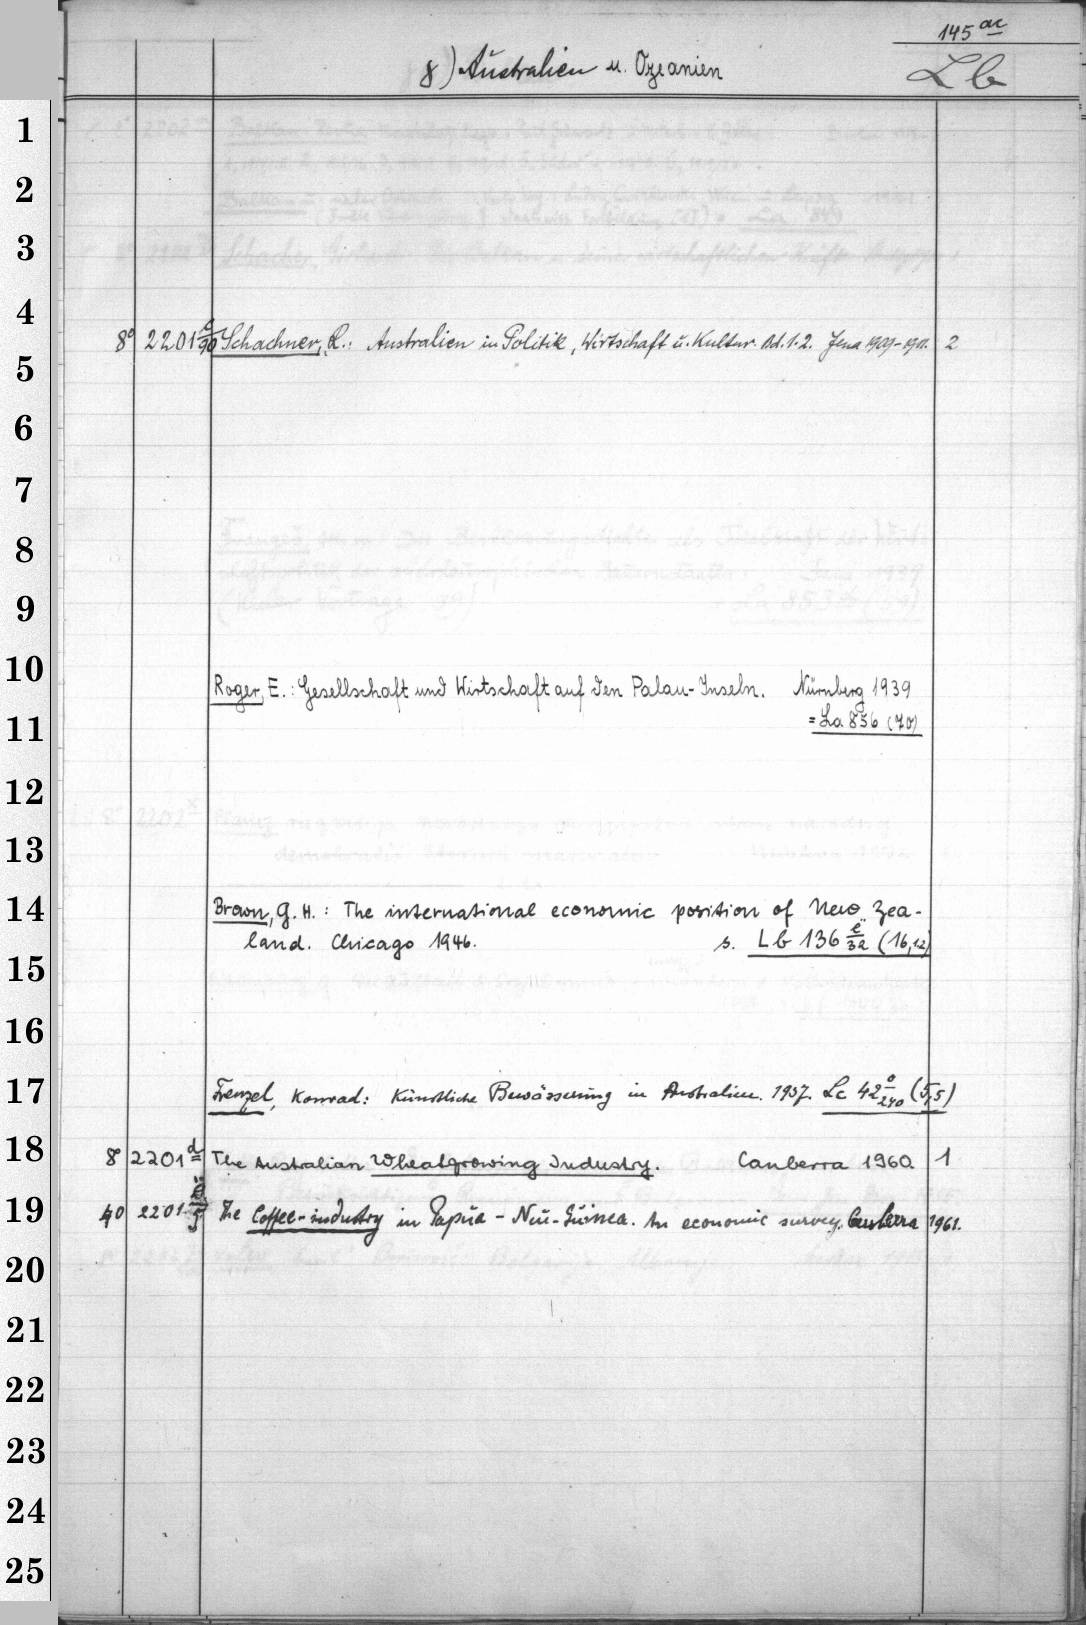 145 ae
8) Australien u. Ozeanien
Lb
1
2
3
4
8° 2201 c/90 Schachner, R.: Australien in Politik, Wirtschaft u. Kultur. Bd. 1.2. Jena 1909-1911. 2
5
6
7
8
9
10
Roger, E.: Gesellschaft und Wirtschaft auf den Palau-Inseln. Nürnberg 1939
= La 856 (70)
11
12
13
14
Brown, G. H.: The international economic position of New Zea-
land. Chicago 1946. s. Lb 136 e/32 (16,12)
15
16
17
Frenzel, Konrad: Künstliche Bewässerung in Australien. 1957. Lc 42 o/240 (5,5)
18
8° 2201 d The Australian Wheatgrowing Industry. Canberra 1960 1
19
40 2201 The Coffee-industry in Papua-Neu-Guinea. An economic survey. Canberra 1961.
20
21
22
23
24
25